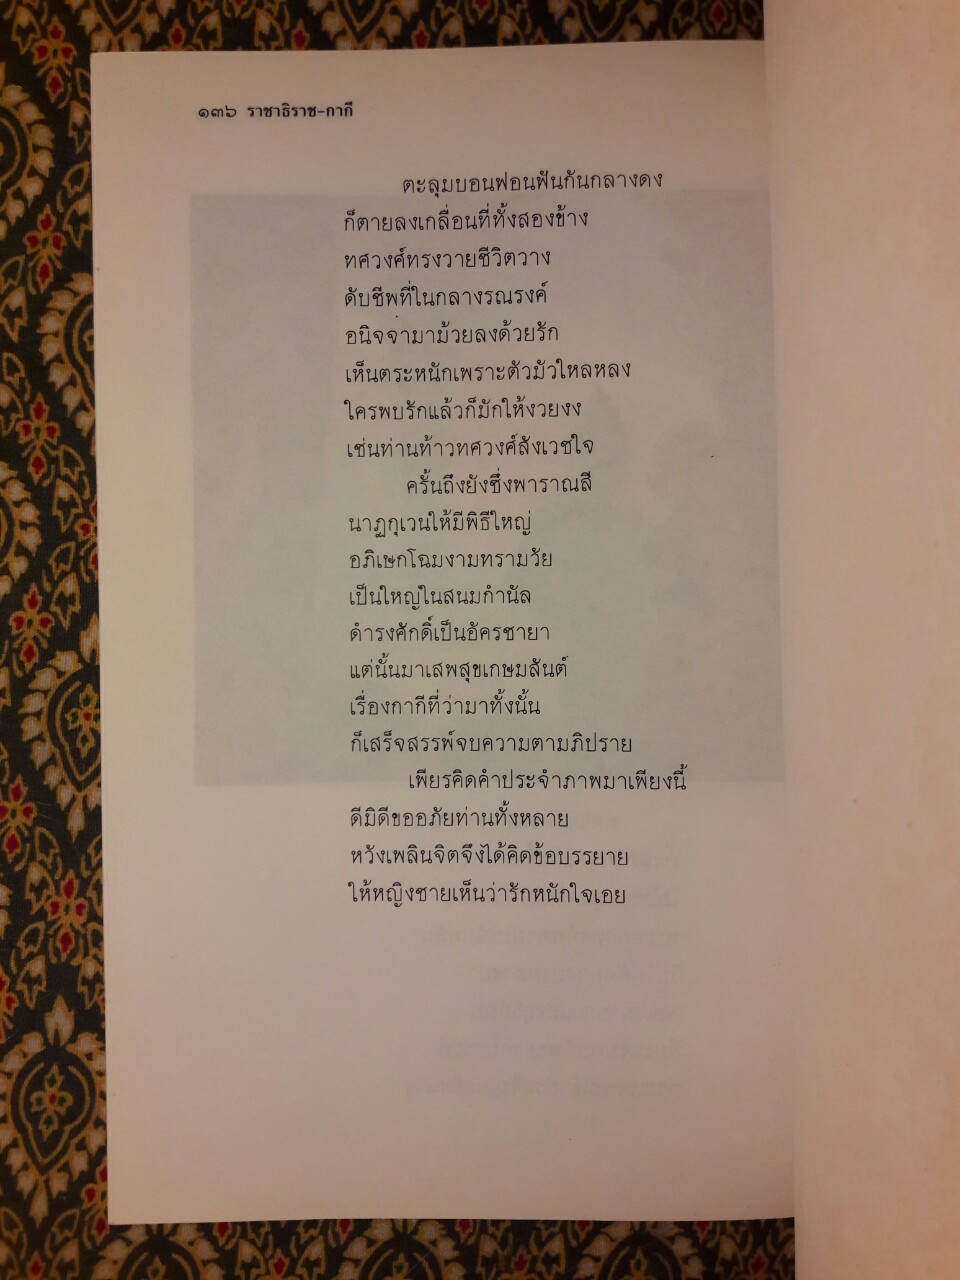 ๑๓๖ ราชาธิราช-กากี
ตะลุมบอนฟอนฟันกันกลางดง
ก็ตายลงเกลื่อนที่ทั้งสองข้าง
ทศวงศ์ทรงวายชีวิตวาง
ดับชีพที่ในกลางรณรงค์
อนิจจามาม้วยลงด้วยรัก
เห็นตระหนักเพราะตัวมัวใหลหลง
ใครพบรักแล้วก็มักให้งวยงง
เช่นท่านท้าวทศวงศ์สังเวชใจ
ครั้นถึงยังซึ่งพาราณสี
นาฏกุเวนให้มีพิธีใหญ่
อภิเษกโฉมงามทรามวัย
เป็นใหญ่ในสนมกำนัล
ดำรงศักดิ์เป็นอัครชายา
แต่นั้นมาเสพสุขเกษมสันต์
เรื่องกากีที่ว่ามาทั้งนั้น
ก็เสร็จสรรพ์จบความตามภิปราย
เพียรคิดคำประจำภาพมาเพียงนี้
ดีมิดีขออภัยท่านทั้งหลาย
หวังเพลินจิตจึงได้คิดข้อบรรยาย
ให้หญิงชายเห็นว่ารักหนักใจเอย